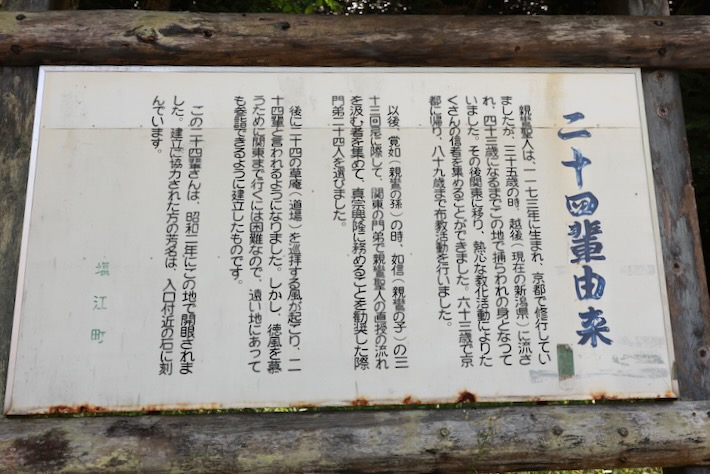 二十四輩由来
親鸞聖人は、一一七三年に生まれ、京都で修行してい
ましたが、三十五歳の時、越後(現在の新潟県)に流さ
れ、四十三歳になるまでこの地で捕らわれの身となって
いました。その後関東に移り、熱心な教化活動によりた
くさんの信者を集めることができました。六十三歳で京
都に帰り、八十九歳まで布教活動を行いました。
以後、覚如(親鸞の孫)の時、如信(親鸞の子)の三
十三回忌に際して、関東の門弟で親鸞聖人の直授の流れ
を汲む者を集めて、真宗興隆に務めることを勧奨した際
門弟二十四人を選びました。
後に二十四の草庵(道場)を巡拝する風が起こり、二
十四輩と言われるようになりました。しかし、徳風を慕
うために関東まで行くには困難なので、遠い地にあって
も参詣できるように建立したものです。
この二十四輩さんは、昭和二年にこの地で開眼されま
した。建立に協力された方の芳名は、入口付近の石に刻
んでいます。
塩江町